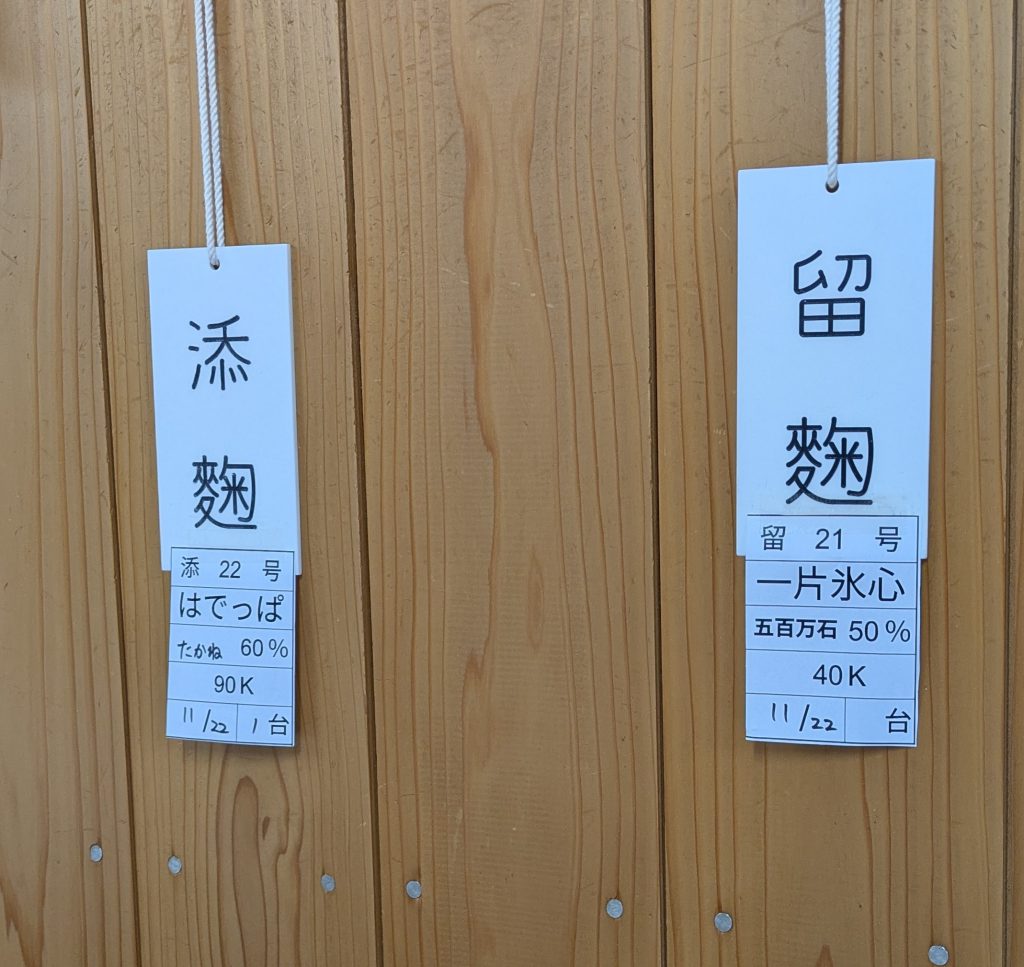 添
麴
添 22 号
はでっぱ
たかね 60%
90K
11/22 1 台
留
麴
留 21 号
一片氷心
五百万石 50%
40K
11/22 台